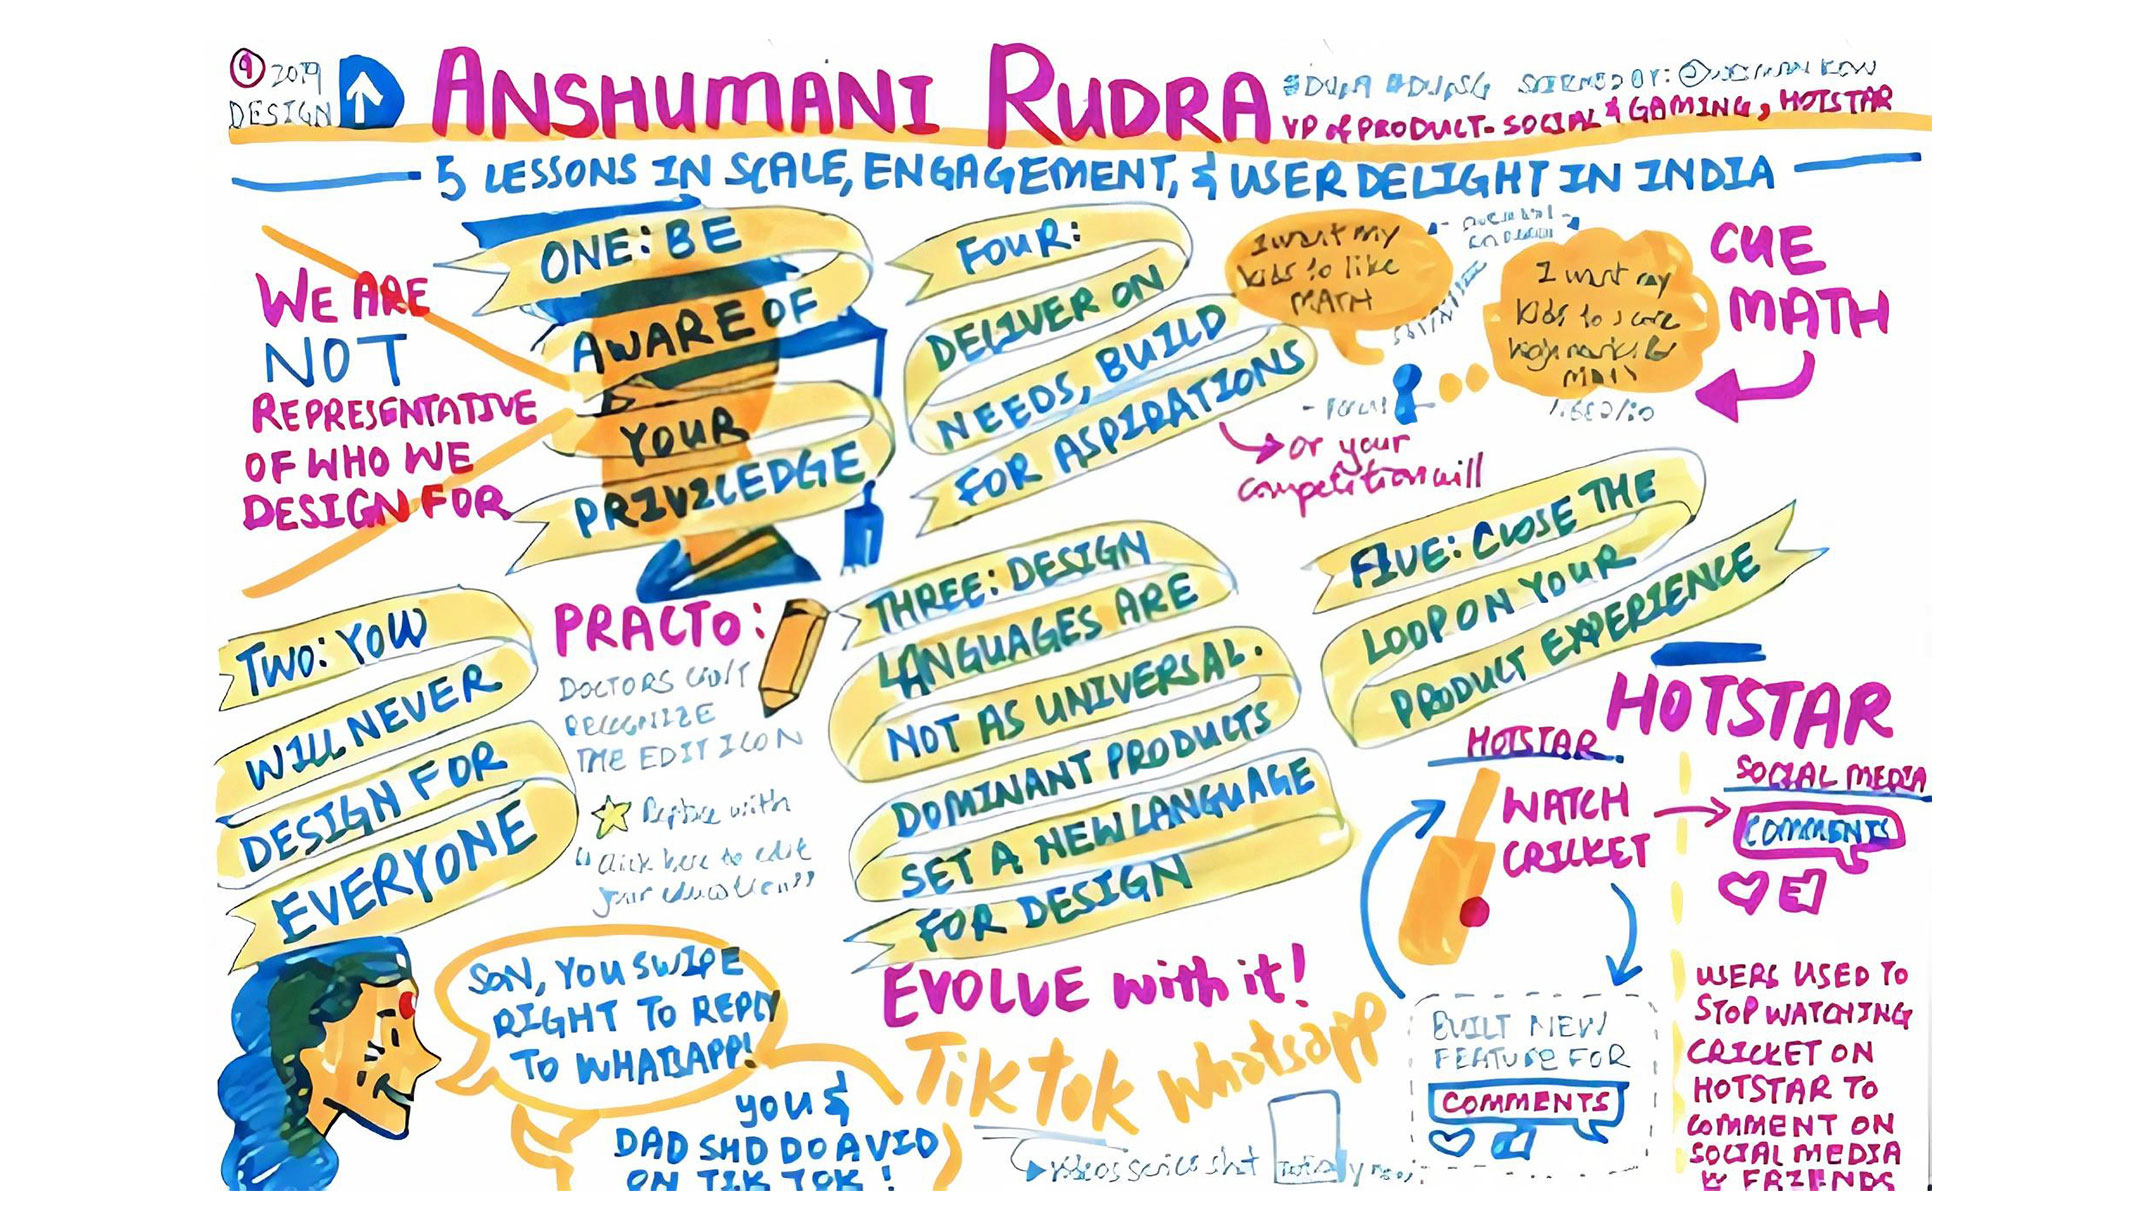 2019
DESIGN
ANSHUMANI RUDRA
VP of PRODUCT- SOCIAL & GAMING, HOTSTAR
5 LESSONS IN SCALE, ENGAGEMENT, & USER DELIGHT IN INDIA
WE ARE
NOT
REPRESENTATIVE
OF WHO WE
DESIGN FOR
ONE: BE
AWARE OF
YOUR
PRIVILEDGE
TWO: YOU
WILL NEVER
DESIGN FOR
EVERYONE
PRACTO:
DOCTORS
RECOGNIZE
THE EDIT ICON
Replace with
"click here to edit
your education"
SON, YOU SWIPE
RIGHT TO REPLY
TO WHATSAPP!
YOU &
DAD SHD DO A VID
ON TIK TOK!
THREE: DESIGN
LANGUAGES ARE
NOT AS UNIVERSAL.
DOMINANT PRODUCTS
SET A NEW LANGUAGE
FOR DESIGN
EVOLVE with it!
Tik tok whatsapp
videos
FOUR:
DELIVER ON
NEEDS, BUILD
FOR ASPIRATIONS
or your
competition will
I want my
kids to like
MATH
I want my
kids to score
high marks
CUE
MATH
FIVE: CLOSE THE
LOOP ON YOUR
PRODUCT EXPERIENCE
HOTSTAR
HOTSTAR
WATCH
CRICKET
SOCIAL MEDIA
COMMENTS
BUILT NEW
FEATURE FOR
COMMENTS
USERS USED TO
STOP WATCHING
CRICKET ON
HOTSTAR TO
COMMENT ON
SOCIAL MEDIA
FRIENDS